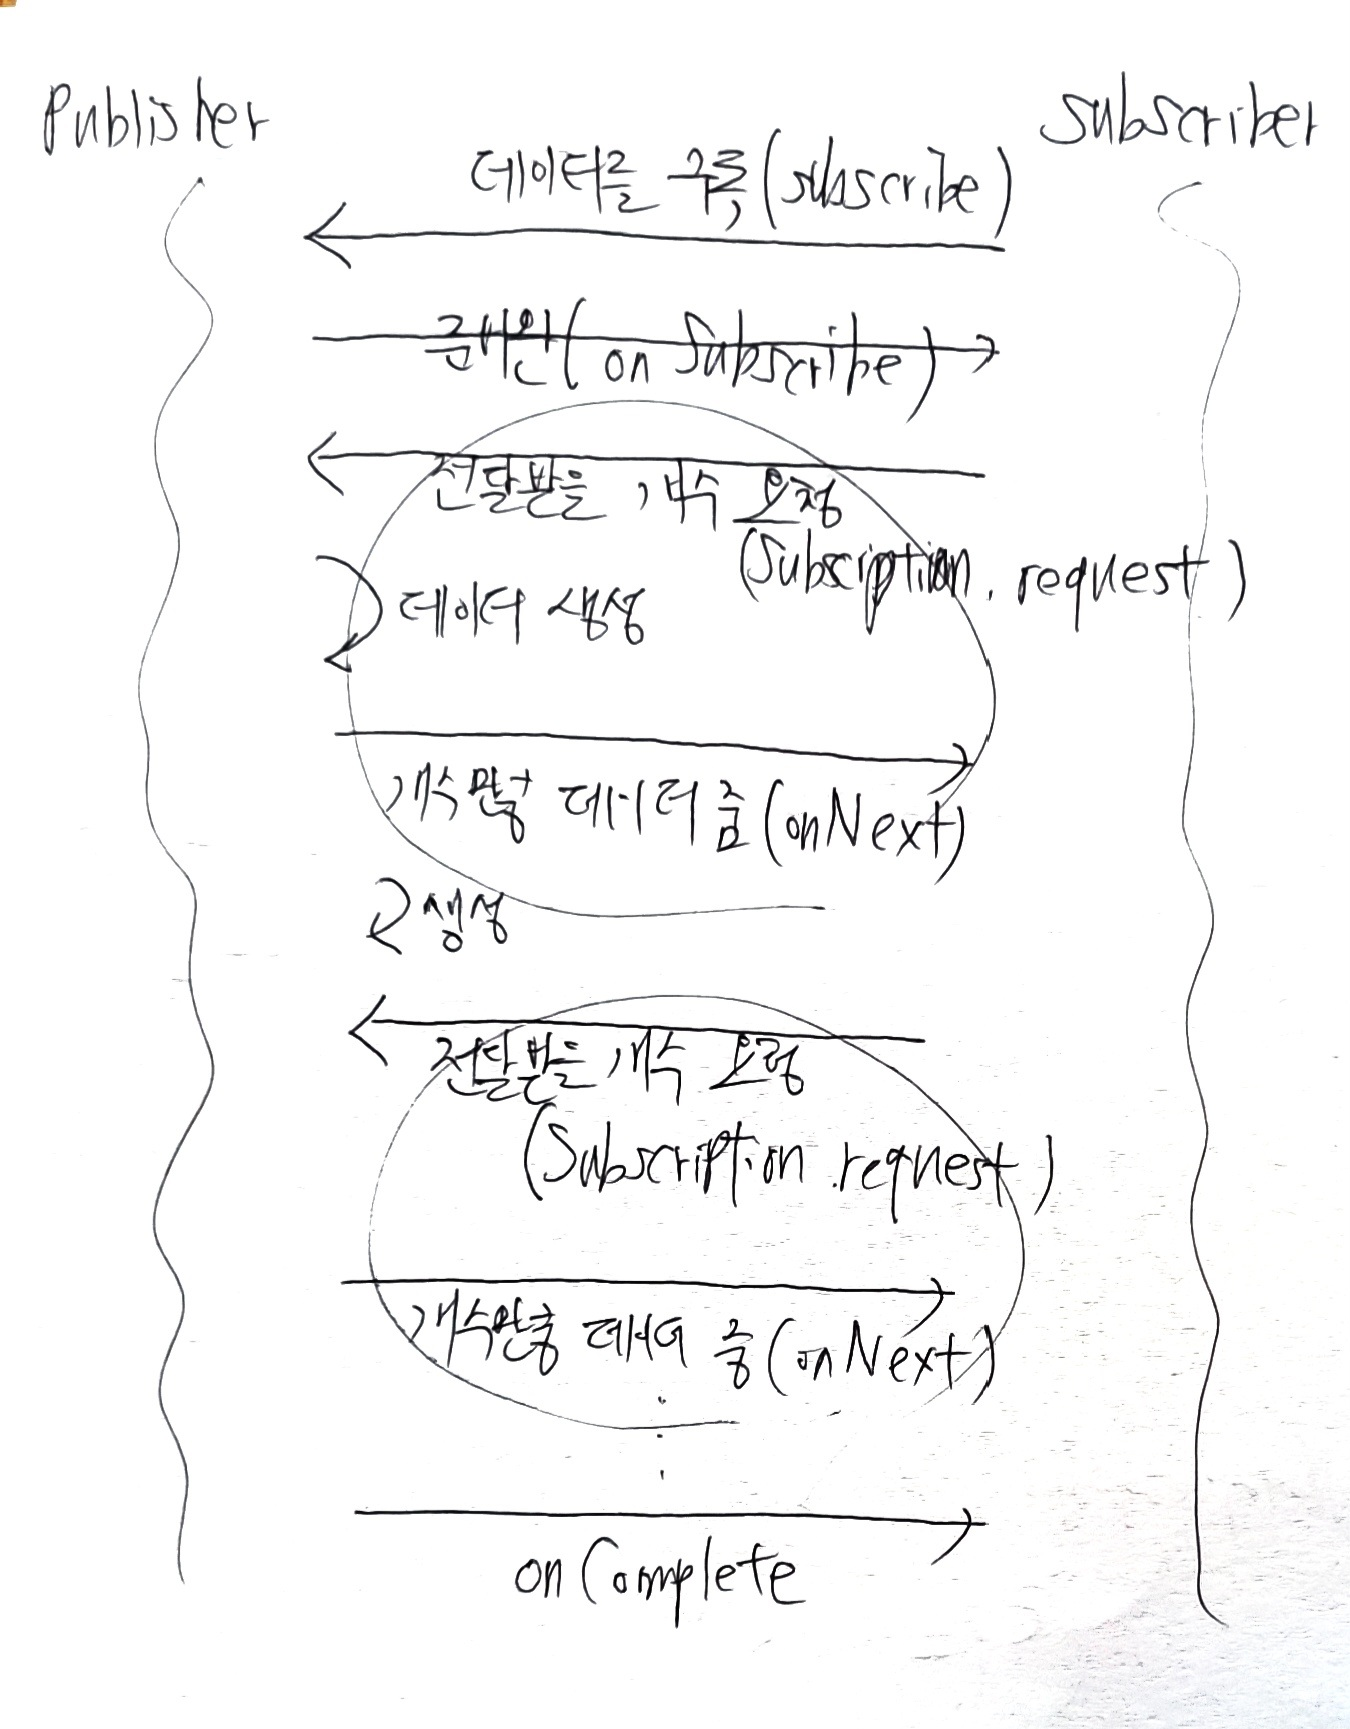 Publisher
Subscriber
데이터를 구독(subscribe)
준비완(onSubscribe)
전달받을 개수 요청
(Subscription.request)
데이터 생성
개수만큼 데이터 줌(onNext)
생성
전달받을 개수 요청
(Subscription.request)
개수만큼 데이터 줌(onNext)
onComplete